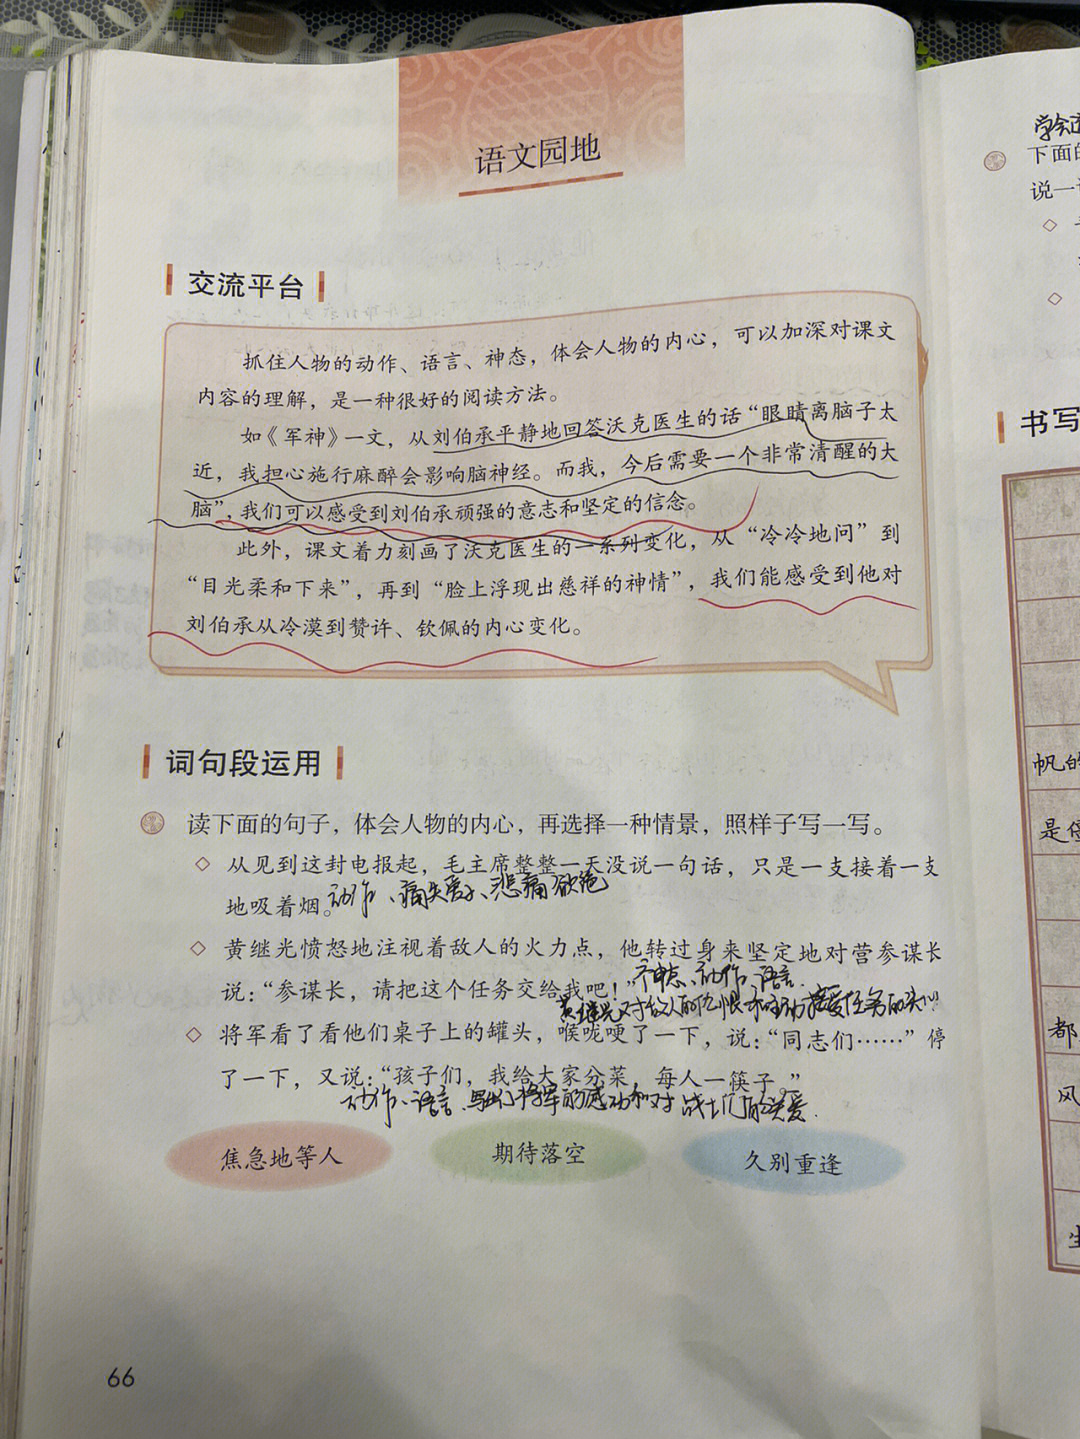 语文园地
交流平台
抓住人物的动作、语言、神态，体会人物的内心，可以加深对课文
内容的理解，是一种很好的阅读方法。
如《军神》一文，从刘伯承平静地回答沃克医生的话“眼睛离脑子太
近，我担心施行麻醉会影响脑神经。而我，今后需要一个非常清醒的大
脑”，我们可以感受到刘伯承顽强的意志和坚定的信念。
此外，课文着力刻画了沃克医生的一系列变化，从“冷冷地问”到
“目光柔和下来”，再到“脸上浮现出慈祥的神情”，我们能感受到他对
刘伯承从冷漠到赞许、钦佩的内心变化。
词句段运用
读下面的句子，体会人物的内心，再选择一种情景，照样子写一写。
从见到这封电报起，毛主席整整一天没说一句话，只是一支接着一支
地吸着烟。
动作、痛失爱子、悲痛欲绝
黄继光愤怒地注视着敌人的火力点，他转过身来坚定地对营参谋长
说：“参谋长，请把这个任务交给我吧！”
神态、动作、语言.
黄继光对敌人的仇恨和主动接受任务的决心
将军看了看他们桌子上的罐头，喉咙哽了一下，说：“同志们……”停
了一下，又说：“孩子们，我给大家分菜，每人一筷子。”
动作、语言、写出将军的感动和对战士们的关爱.
焦急地等人
期待落空
久别重逢
66
学会
下面的
说一
书写
帆的
是停
都
风
生